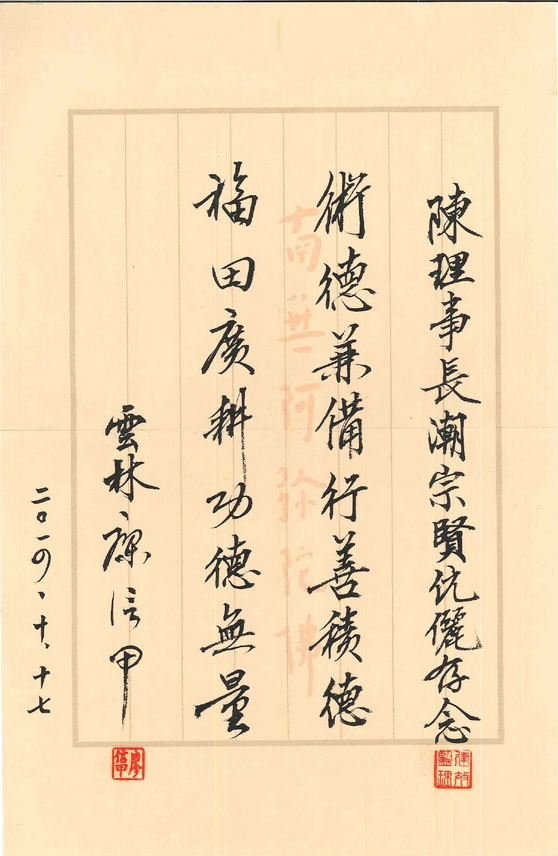 陳理事長潮宗賢伉儷存念
術德兼備行善積德
南無阿弥陀佛
福田廣耕功德無量
雲林廖信甲
二〇一四、十、十七